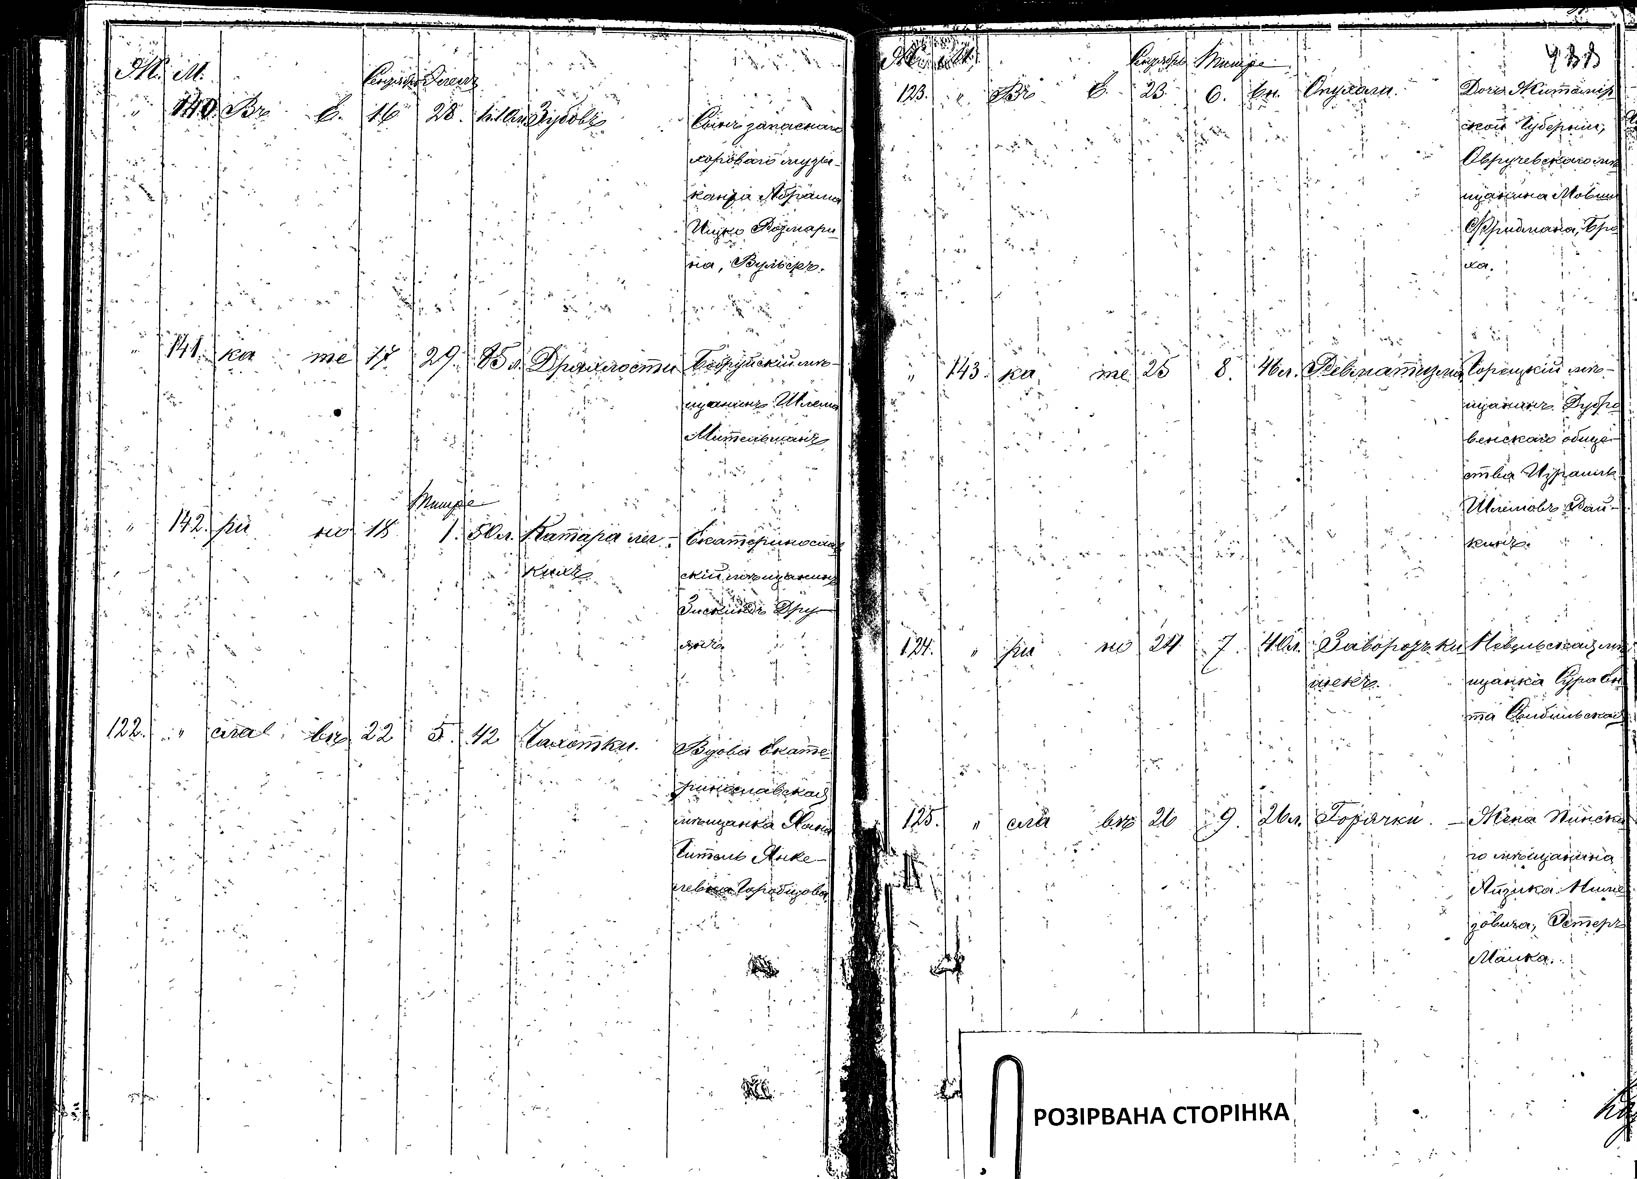 Ж. М. Сентябрь Элелъ
" 140. Въ Е. 16 28 Зубовъ Сынъ запаснаго
хороваго музы-
канта Абрама
Ицко Розмари-
на, Вульфъ.
" 141. ка те 17 29 85 л. Дряхлости Бобруйскій мѣ-
щанинъ Шлема
Мительманъ
Тишре
" 142. ри но 18 1. 50 л. Катара лег- Екатеринослав
кихъ скій мѣщанинъ
Зискинъ Дру-
янъ.
122. " слав въ 22 5. 42 Чахотки. Вдова Екате-
ринославская
мѣщанка Хана
Читель Янке-
левна
Ж. М. Сентябрь Тишре 433
123. " Въ Е. 23 6. 6 м. Опухоли. Дочь Житомір
ской Губерніи,
Овручевскаго мѣ
щанина Мовши
Фридмана, Бро
ха.
" 143. ка те 25 8. 46 л. Ревматизма Горецкій мѣ-
щанинъ Дубро
венскаго обще-
ства Израиль
Шлемовъ
кинъ.
124. " ри но 24 7. 40 л. Заворотъ ки Невельская мѣ
шекъ. щанка Сура
та
125. " сла въ 26 9. 26 л. Горячки. - Жена Пинска
го мѣщанина
Айзика
зовича, Эстеръ
Малка.
РОЗІРВАНА СТОРІНКА